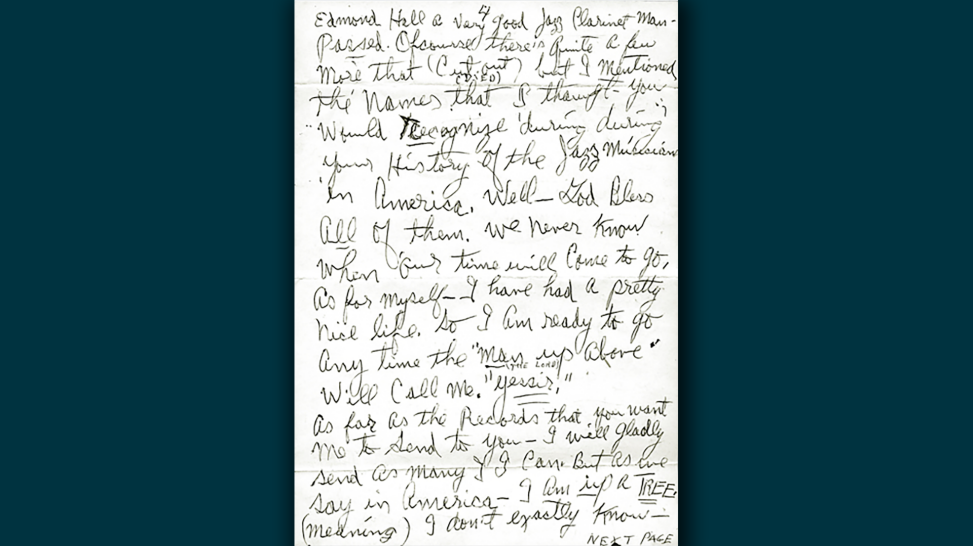 4
Edmond Hall a Very good Jazz Clarinet Man-
Passed. Ofcourse there's Quite a few
More that (Cut out) but I Mentioned
(DIED)
the Names that I thought you
"Would Recognize 'during during"
your History of the Jazz Musician
in America. Well– God Bless
All of them. We Never Know
When our time will Come to go.
As for myself–– I have had a pretty
Nice life. So I Am ready to go
Any time the "Man up Above"
(THE LORD)
Will Call Me. "Yessir."
As far as the Records that you want
Me to Send to you– I will gladly
send as Many I Can. But as we
say in America– I Am up a TREE.
(Meaning) I don't exactly Know–
NEXT PAGE